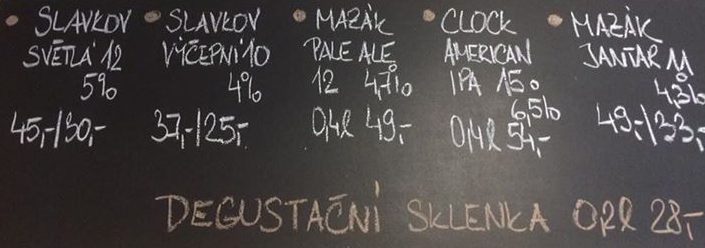 SLAVKOV
SVĚTLÁ 12
5%
45,-/30,-
SLAVKOV
VÝČEPNÍ 10
4%
37,-/25,-
MAZÁK
PALE ALE
12 4,7%
0,4l 49,-
CLOCK
AMERICAN
IPA 15°
6,5%
0,4l 54,-
MAZÁK
JANTAR 11°
4,3%
49,-/33,-
DEGUSTAČNÍ SKLENKA 0,2l 28,-